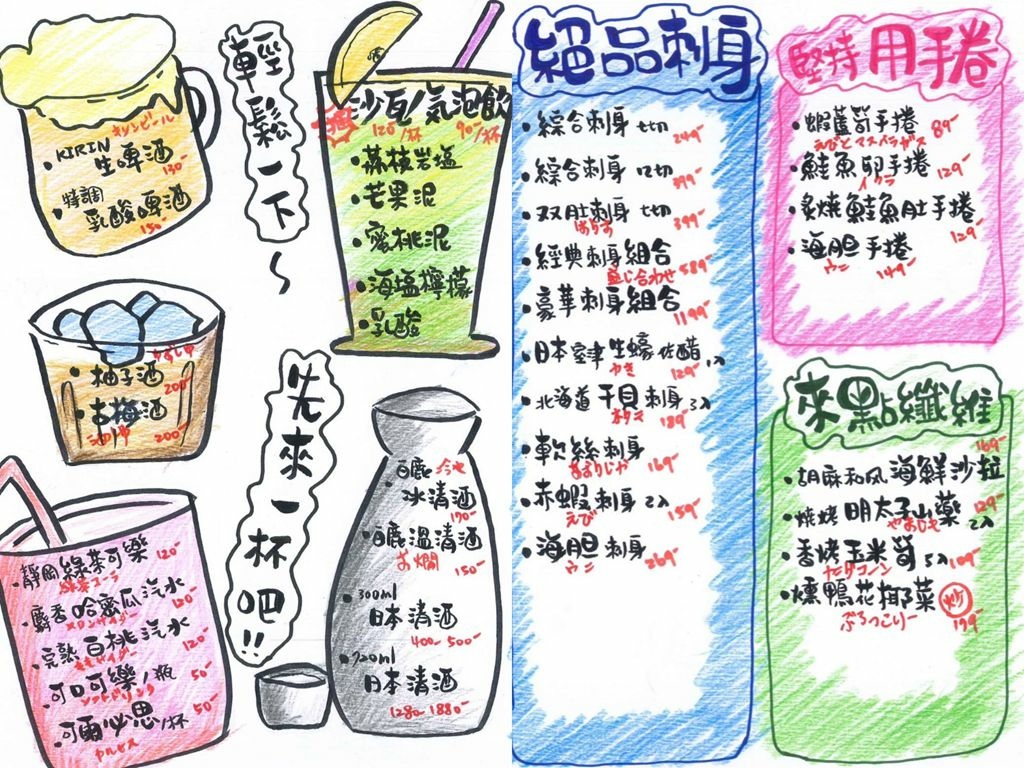 輕鬆一下~
キリンビール
KIRIN
生啤酒
130-
特調
乳酸啤酒
150-
沙瓦/氣泡飲
120/杯 90-/杯
荔枝岩塩
芒果泥
蜜桃泥
海塩檸檬
乳酸
柚子酒
200-
古梅酒
200-
先來一杯吧!!
靜岡綠茶可樂 120-
緑茶コーラ
麝香哈蜜瓜汽水 120-
メロンサイダー
完熟白桃汽水 120-
ももサイダー
可口可樂/瓶 50-
ソフトドリンク
可爾必思/杯 50-
カルピス
白鹿
冰清酒
170-
白鹿溫清酒
お燗 150-
300ml
日本清酒
400-500-
720ml
日本清酒
1280-1880-
絕品刺身
綜合刺身 七切 249-
綜合刺身 12切 399-
双肚刺身 七切 399-
はらす
經典刺身組合 589-
盛じ合わせ
豪華刺身組合
1199-
日本室津生蠔佐醋 1入
かき 129-
北海道干貝刺身 3入
ホタテ 189-
軟絲刺身 169-
赤蝦刺身 2入 159-
えび
海胆刺身 269-
ウニ
堅持用手捲
蝦蘆筍手捲 89-
えびとアスパラガス
鮭魚卵手捲 129-
イクラ
炙燒鮭魚肚手捲
129
海胆手捲
ウニ 149-
來點纖維
169-
胡麻和风海鮮沙拉
燒烤明太子山藥 2入 129-
香烤玉米筍 5入 109-
燻鴨花椰菜 炒
ぶろっこりー 179